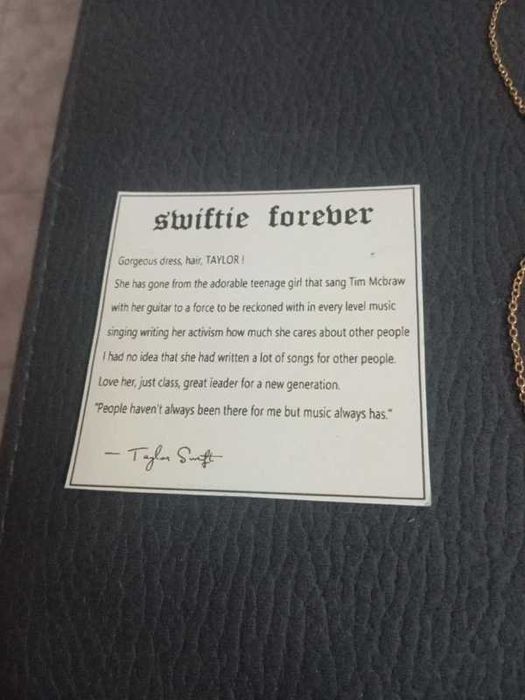 swiftie forever
Gorgeous dress, hair, TAYLOR !
She has gone from the adorable teenage girl that sang Tim Mcbraw
with her guitar to a force to be reckoned with in every level music
singing writing her activism how much she cares about other people
I had no idea that she had written a lot of songs for other people.
Love her, just class, great leader for a new generation.
"People haven't always been there for me but music always has."
— Taylor Swift